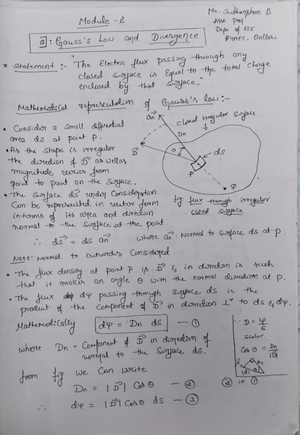 Module - 2
Mr. Sudharshan B
Asst Prof
Dept of ECE
a): Gauss's Law and Divergence
* Statement :- The Electric flux passing through any
closed surface is Equal to the total charge
enclosed by that surface.
Mathematical representation of Gauss's law:-
• Consider a small differential
area ds at point P.
• As the shape is irregular
the direction of D as well as
magnitude varies from
point to point on the surface.
• The surface ds under consideration
Can be represented in vector form
in terms of its area and direction
normal to the surface at the point
∴ ds = ds an where an : Normal to surface ds at P.
an
closed irregular surface
Dn
D
θ
P
ds
fig flux through irregular
closed surface
Note: Normal to outwards Considered
• The flux density at point P is D & its direction is such
that it makes an angle θ with the normal direction at P.
• The flux dψ passing through surface ds is the
product of the component of D in direction ⊥r to ds & dψ.
Mathematically dψ = Dn ds — ①
where Dn = Component of D in direction of
normal to the surface ds.
from fig we can write
Dn = |D| cos θ — ②
② in ①
dψ = |D| cos θ ds — ③
scalar
cos θ = Dn/|D|